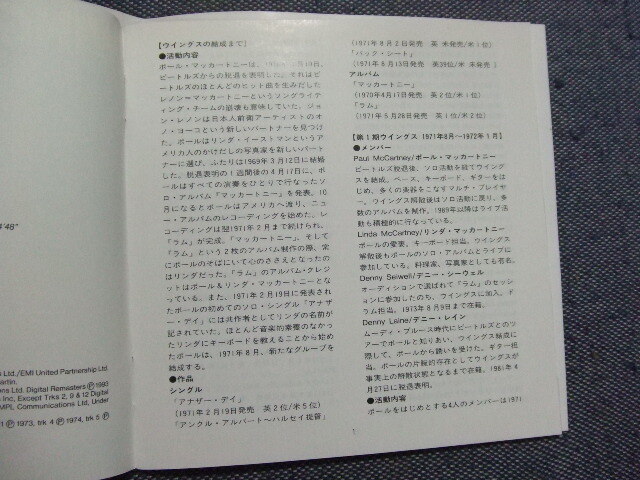 4'46"
s Ltd./EMI United Partnership Ltd.
artin.
ions Ltd. Digital Remasters Ⓟ1993
Inc, Except Trks 2, 9 & 12 Digital
MPL Communications Ltd, Under
1 Ⓟ 1973, trk 4 Ⓟ 1974, trk 5 Ⓟ
【ウイングスの結成まで】
●活動内容
ポール・マッカートニーは、
ートルズからの脱退を表明した。それはビ
ートルズのほとんどのヒット曲を生みだした
レノン=マッカートニーというソングライテ
ィング・チームの崩壊も意味していた。ジョ
ン・レノンは日本人前衛アーティストのオ
ノ・ヨーコという新しいパートナーを見つけ
た。ポールはリンダ・イーストマンというア
メリカ人のかけだしの写真家を新しいパート
ナーに選び、ふたりは1969年3月12日に結婚
した。脱退表明の1週間後の4月17日に、ポ
ールはすべての演奏をひとりで行なったソ
ロ・アルバム「マッカートニー」を発表。10
月になるとポールはアメリカへ渡り、ニュ
ー・アルバムのレコーディングを始めた。レ
コーディングは翌1971年2月まで続けられ、
「ラム」が完成。「マッカートニー」そして
「ラム」という2枚のアルバム制作の際、常
にポールのそばにいて心のささえとなったの
はリンダだった。「ラム」のアルバム・クレジ
ットはポール&リンダ・マッカートニーとなっ
ている。また、1971年2月19日に発表された
ポールの初めてのソロ・シングル「アナザ
ー・デイ」には共作者としてリンダの名前が
記されていた。ほとんど音楽的素養のなかっ
たリンダにキーボードを教えることから始め
たポールは、1971年8月、新たなグループを
結成する。
●作品
シングル
「アナザー・デイ」
(1971年2月19日発売 英2位/米5位)
「アンクル・アルバート〜ハルセイ提督」
(1971年8月2日発売 英 未発売/米1位)
「バック・シート」
(1971年8月13日発売 英39位/米 未発売)
アルバム
「マッカートニー」
(1970年4月17日発売 英2位/米1位)
「ラム」
(1971年5月28日発売 英1位/米2位)
【第1期ウイングス 1971年8月〜1972年1月】
●メンバー
Paul McCartney/ポール・マッカートニー
ビートルズ脱退後、ソロ活動を経てウイング
スを結成。ベース、キーボード、ギターをは
じめ、多くの楽器をこなすマルチ・プレイヤ
ー。ウイングス解散後はソロ活動に戻り、多
数のアルバムを制作。1989年以降はライブ活
動も積極的に行なっている。
Linda McCartney/リンダ・マッカートニー
ポールの愛妻。キーボード担当。ウイングス
解散後もポールのソロ・アルバムとライブに
参加している。料理家、写真家としても有名。
Denny Seiwell/デニー・シーウェル
オーディションで選ばれて「ラム」のセッシ
ョンに参加したのち、ウイングスに加入。ド
ラム担当。1973年8月9日まで在籍。
Denny Laine/デニー・レイン
ムーディ・ブルース時代にビートルズとのツ
アーでポールと知りあい、ウイングス結成に
際して、ポールから誘いを受けた。ギター担
当。ポールの片腕的存在としてウイングスが
事実上の解散状態となるまで在籍。1981年4
月27日に脱退表明。
●活動内容
ポールをはじめとする4人のメンバーは1971